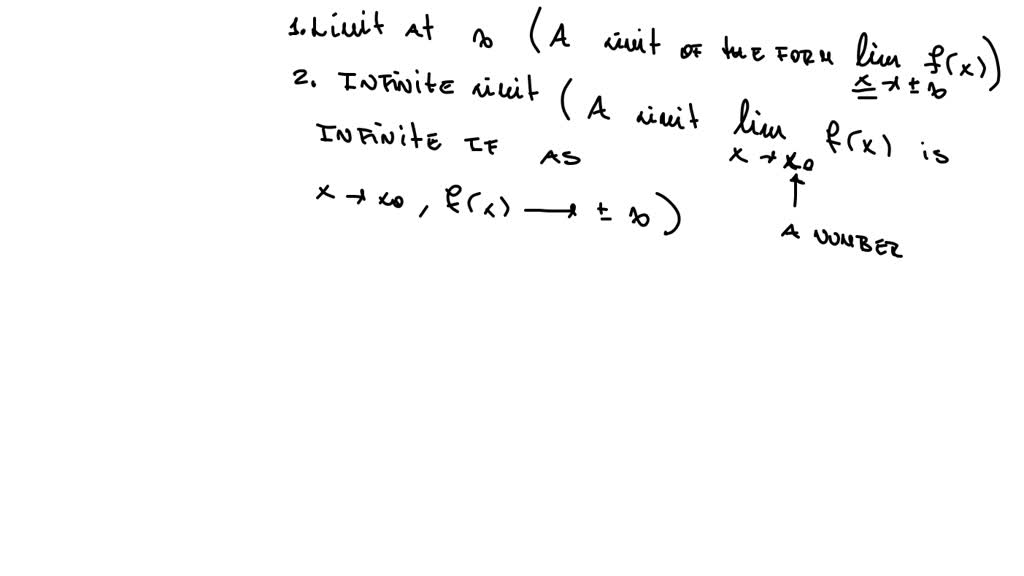 1. Limit at ∞ (A limit of the form lim f(x))
x → ±∞
2. Infinite limit (A limit lim f(x) is
x → x₀
infinite if as
x → x₀, f(x) → ±∞)
↑
A number